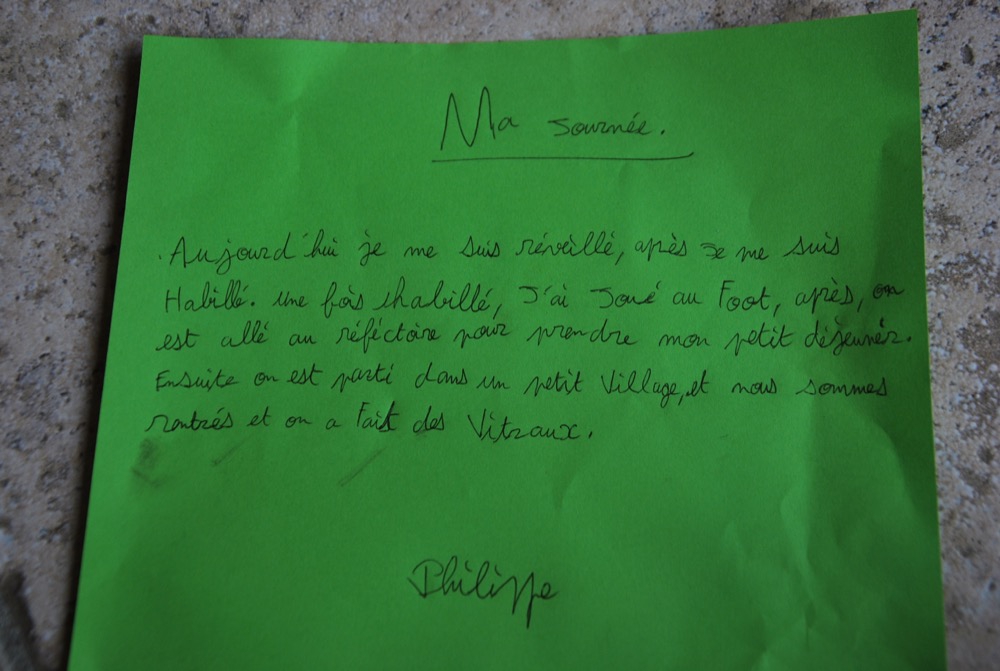 Ma Journée.
Aujourd'hui je me suis réveillé, après Je me suis
Habillé. une fois habillé, J'ai Joué au Foot, après, on
est allé au réféctoire pour prendre mon petit déjeunér.
Ensuite on est parti dans un petit Village, et nous sommes
rentrés et on a Fait des Vitraux.
Philippe